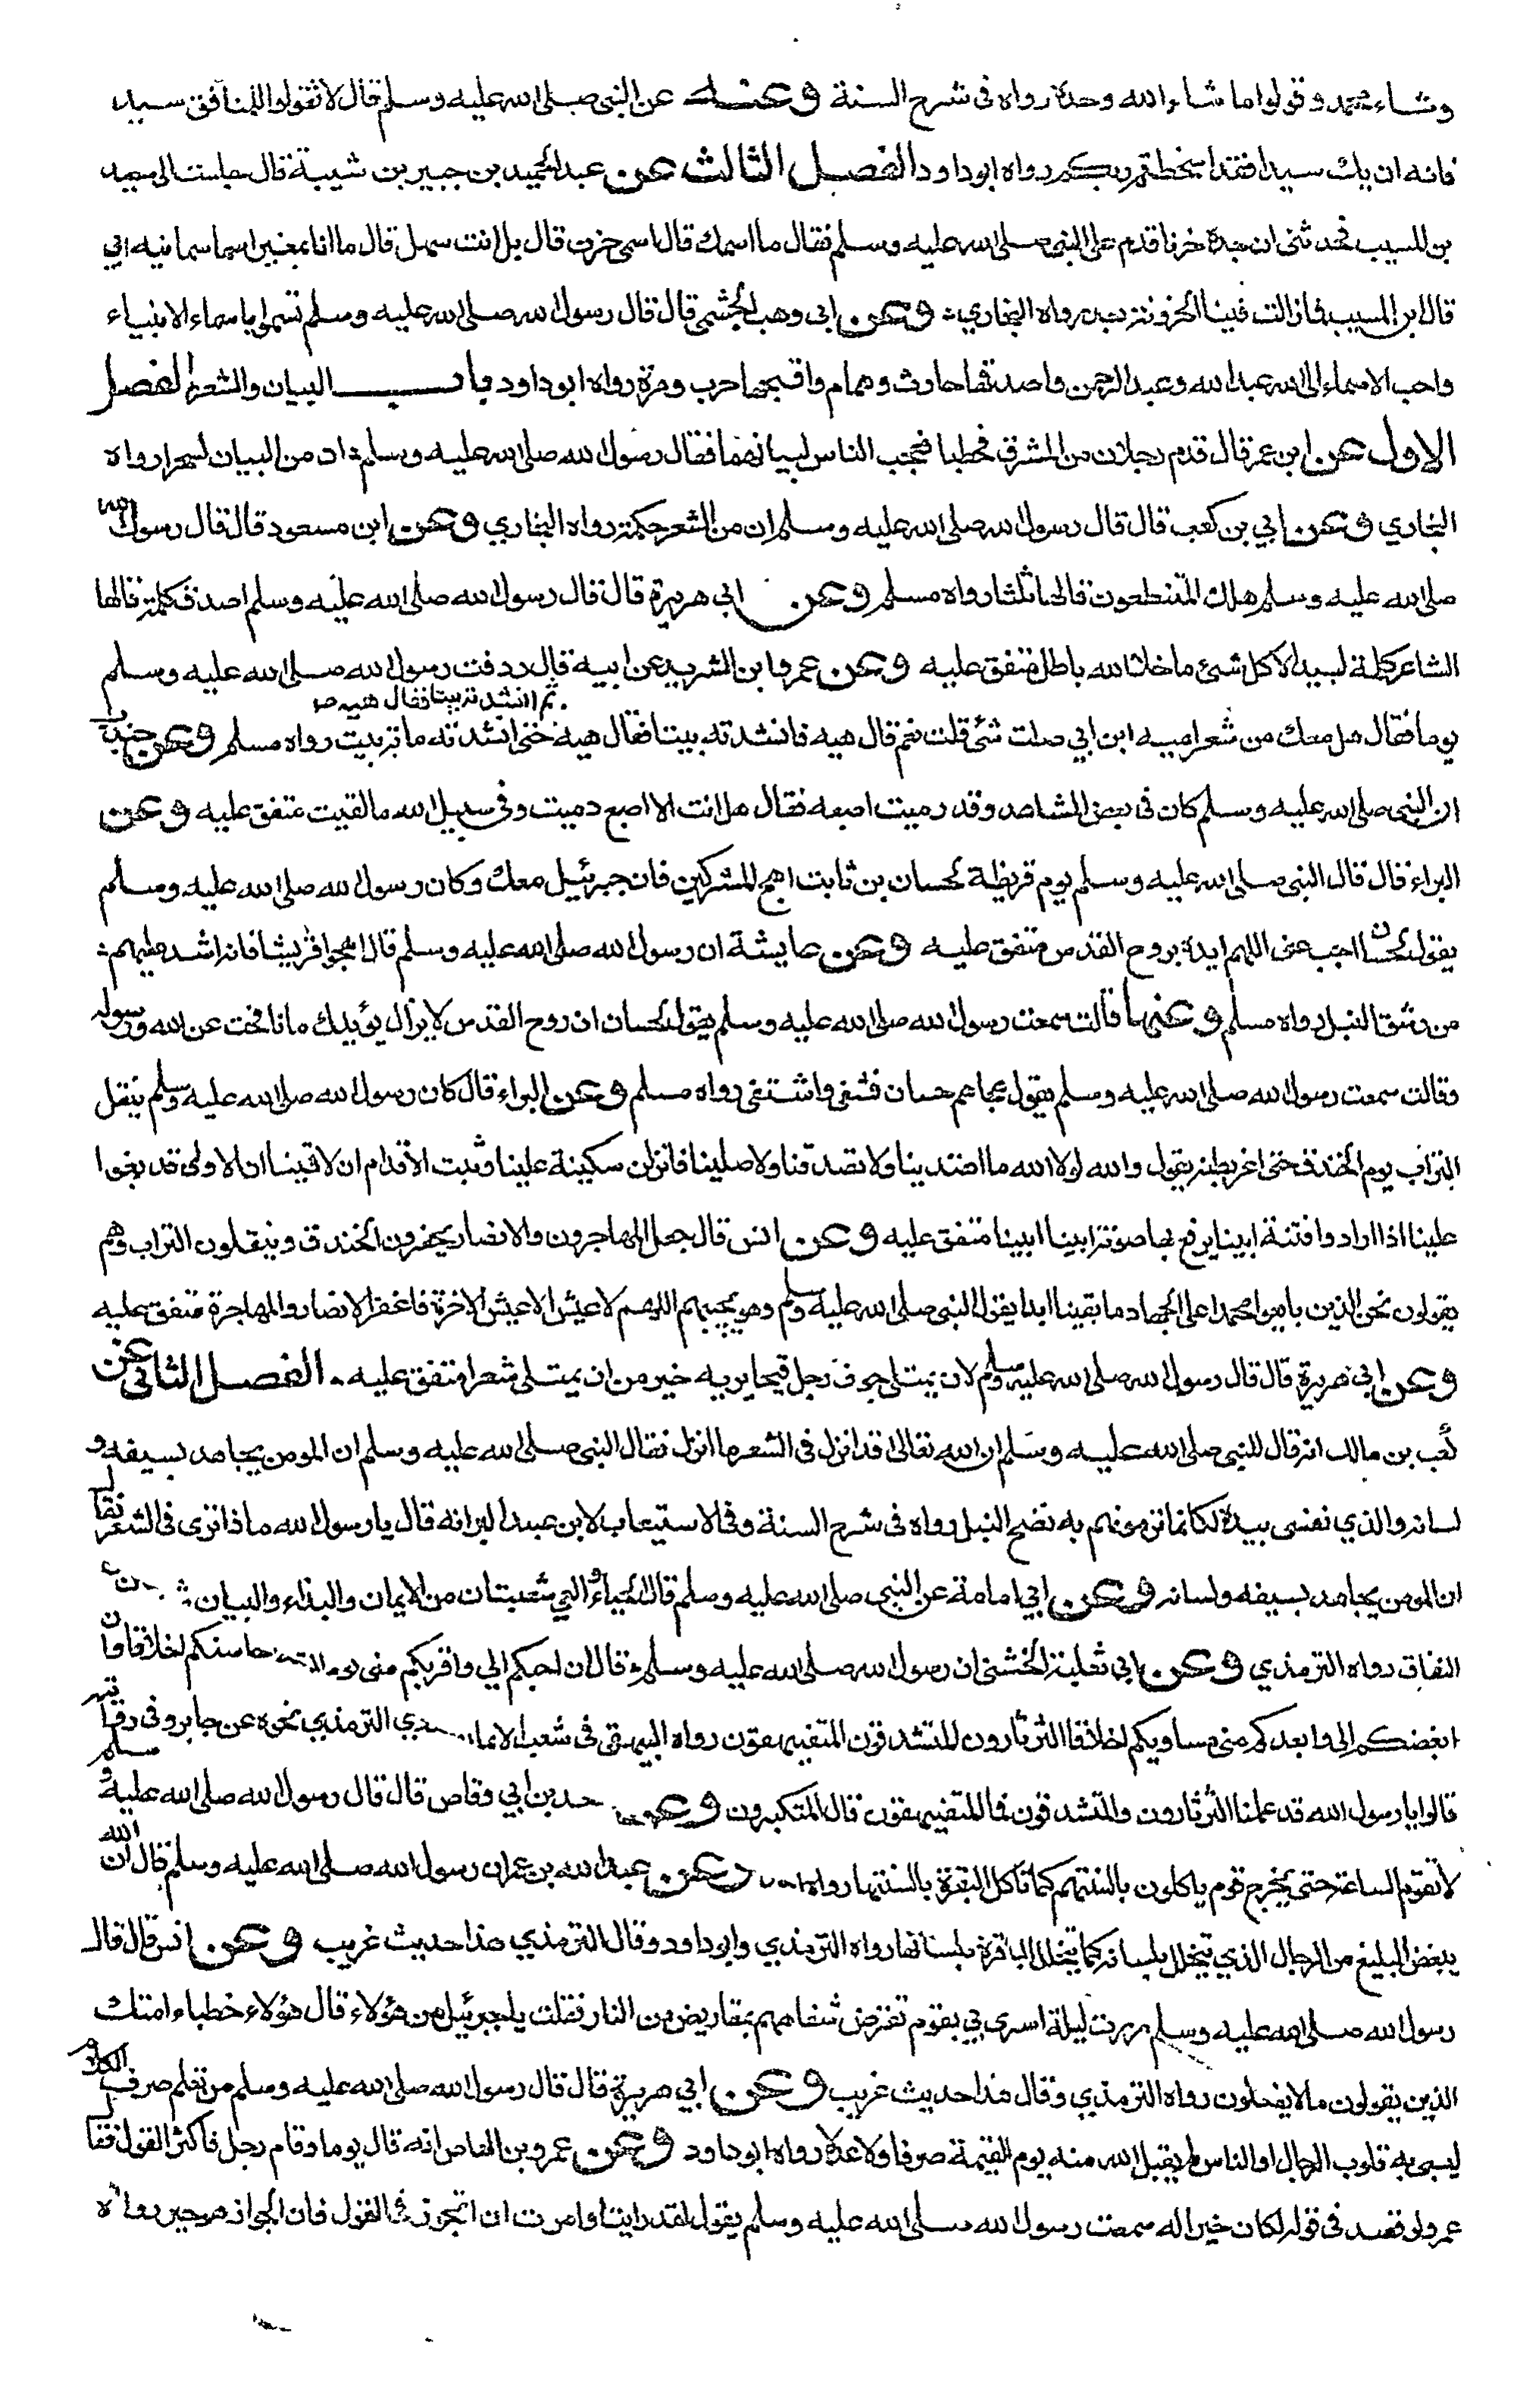 وشاء محمد وقولوا ما شاء الله وحده رواه فى شرح السنة وعنه عن النبى صلى الله عليه وسلم قال لا تقولوا للمنافق سيد
فانه ان يك سيدا فقد اسخطتم ربكم رواه ابو داود الفصل الثالث عن عبد الحميد بن جبير بن شيبة قال جلست الى سعيد
بن المسيب فحدثنى ان جده حزنا قدم على النبى صلى الله عليه وسلم فقال ما اسمك قال اسمى حزن قال بل انت سهل قال ما انا بمغير اسما سمانيه ابي
قال ابن المسيب فما زالت فينا الحزونة بعد رواه البخاري وعن ابى وهب الجشمى قال قال رسول الله صلى الله عليه وسلم تسموا باسماء الانبياء
واحب الاسماء الى الله عبد الله وعبد الرحمن واصدقها حارث وهمام واقبحها حرب ومرة رواه ابو داود باب البيان والشعر الفصل
الاول عن ابن عمر قال قدم رجلان من المشرق فخطبا فعجب الناس لبيانهما فقال رسول الله صلى الله عليه وسلم ان من البيان لسحرا رواه
البخاري وعن ابي بن كعب قال قال رسول الله صلى الله عليه وسلم ان من الشعر حكمة رواه البخاري وعن ابن مسعود قال قال رسول الله
صلى الله عليه وسلم هلك المتنطعون قالها ثلثا رواه مسلم وعن ابى هريرة قال قال رسول الله صلى الله عليه وسلم اصدق كلمة قالها
الشاعر كلمة لبيد الا كل شئ ما خلا الله باطل متفق عليه وعن عمرو ابن الشريد عن ابيه قال ردفت رسول الله صلى الله عليه وسلم
ثم انشدته بيتا فقال هيه صد
يوما فقال هل معك من شعر اميه ابن ابي صلت شئ قلت نعم قال هيه فانشدته بيتا فقال هيه حتى انشدته ماتة بيت رواه مسلم وعن جندب
ان النبى صلى الله عليه وسلم كان فى بعض المشاهد وقد رميت اصبعه فقال هل انت الا اصبع دميت وفى سبيل الله ما لقيت متفق عليه وعن
البراء قال قال النبى صلى الله عليه وسلم يوم قريظة لحسان بن ثابت اهج المشركين فان جبرئيل معك وكان رسول الله صلى الله عليه وسلم
يقول لحسان اجب عنى اللهم ايده بروح القدس متفق عليه وعن عايشة ان رسول الله صلى الله عليه وسلم قال اهجوا قريشا فانه اشد عليهم
من رشق النبل رواه مسلم وعنها قالت سمعت رسول الله صلى الله عليه وسلم يقول لحسان ان روح القدس لا يزال يؤيدك ما نافحت عن الله ورسوله
وقالت سمعت رسول الله صلى الله عليه وسلم يقول هجاهم حسان فشفى واشتفى رواه مسلم وعن البراء قال كان رسول الله صلى الله عليه وسلم ينقل
التراب يوم الخندق حتى اغبر بطنه يقول والله لولا الله ما اهتدينا ولا تصدقنا ولا صلينا فانزلن سكينة علينا وثبت الاقدام ان لاقينا ان الاولى قد بغوا
علينا اذا ارادوا فتنة ابينا يرفع بها صوته ابينا ابينا متفق عليه وعن انس قال جعل المهاجرون والانصار يحفرون الخندق وينقلون التراب وهم
يقولون نحن الذين بايعوا محمدا على الجهاد ما بقينا ابدا يقول النبى صلى الله عليه وسلم وهو يجيبهم اللهم لا عيش الا عيش الاخرة فاغفر الانصار والمهاجرة متفق عليه
وعن ابى هريرة قال قال رسول الله صلى الله عليه وسلم لان يمتلى جوف رجل قيحا يريه خير من ان يمتلى شعرا متفق عليه الفصل الثانى عن
كعب بن مالك انه قال للنبى صلى الله عليه وسلم ان الله تعالى قد انزل فى الشعر ما انزل فقال النبى صلى الله عليه وسلم ان المومن يجاهد بسيفه و
لسانه والذي نفسى بيده لكانما ترمونهم به نضح النبل رواه فى شرح السنة وفى الاستيعاب لابن عبد البر انه قال يا رسول الله ماذا ترى فى الشعر فقال
ان المومن يجاهد بسيفه ولسانه وعن ابي امامة عن النبى صلى الله عليه وسلم قال الحياء والعي شعبتان من الايمان والبذاء والبيان
النفاق رواه الترمذي وعن ابى ثعلبة الخشنى ان رسول الله صلى الله عليه وسلم قال ان احبكم الي واقربكم منى يوم القيمة احاسنكم اخلاقا وان
ابغضكم الى وابعدكم منى مساويكم اخلاقا الثرثارون المتشدقون المتفيهقون رواه البيهقى فى شعب الايمان الترمذي نحوه عن جابر وفى رواية
قالوا يا رسول الله قد علمنا الثرثارون والمتشدقون فما المتفيهقون قال المتكبرون وعن بن ابي وقاص قال قال رسول الله صلى الله عليه وسلم
لا تقوم الساعة حتى يخرج قوم ياكلون بالسنتهم كما تاكل البقرة بالسنتها رواه وعن عبد الله بن عمر ان رسول الله صلى الله عليه وسلم قال ان الله
يبغض البليغ من الرجال الذي يتخلل بلسانه كما يتخلل الباقرة بلسانها رواه الترمذي وابو داود وقال الترمذي هذا حديث غريب وعن انس قال قال
رسول الله صلى الله عليه وسلم مررت ليلة اسري بي بقوم تقرض شفاههم بمقاريض من النار فقلت يا جبرئيل من هؤلاء قال هؤلاء خطباء امتك
الذين يقولون ما لا يفعلون رواه الترمذي وقال هذا حديث غريب وعن ابي هريرة قال قال رسول الله صلى الله عليه وسلم من تعلم صرف الكلام
ليسبى به قلوب الرجال او الناس لم يقبل الله منه يوم القيمة صرفا ولا عدلا رواه ابو داود وعن عمرو بن العاص انه قال يوما وقام رجل فاكثر القول فقال
عمرو لو قصد فى قوله لكان خيرا له سمعت رسول الله صلى الله عليه وسلم يقول لقد رايت او امرت ان اتجوز فى القول فان الجواز هو خير رواه